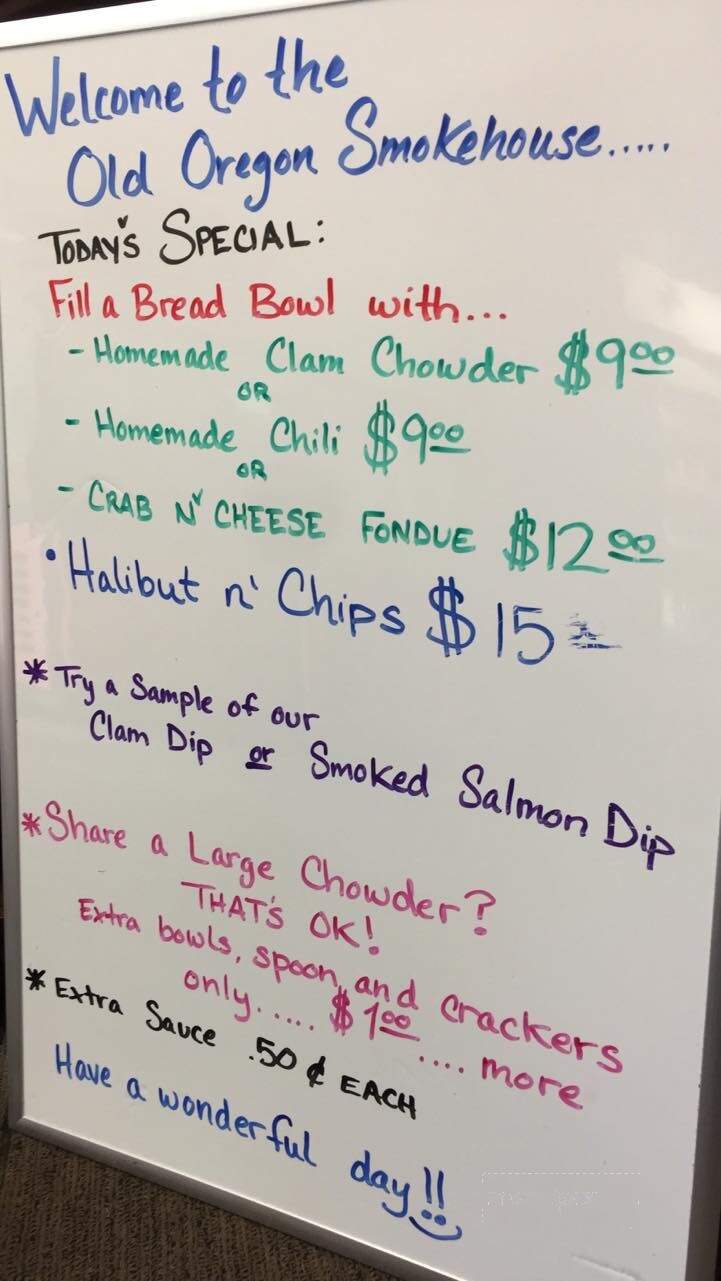 Welcome to the
Old Oregon Smokehouse.....
TODAY'S SPECIAL:
Fill a Bread Bowl with...
- Homemade Clam Chowder $9.00
OR
- Homemade Chili $9.00
OR
- CRAB N' CHEESE FONDUE $12.00
• Halibut n' Chips $15
* Try a Sample of our
Clam Dip or Smoked Salmon Dip
* Share a Large Chowder?
THAT'S OK!
Extra bowls, spoon, and crackers
only..... $1.00 .... more
* Extra Sauce .50¢ EACH
Have a wonderful day!!